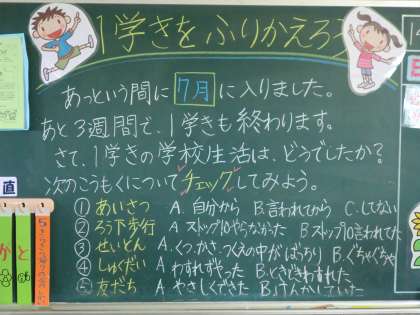 1学きをふりかえろう
あっという間に7月に入りました。
あと3週間で、1学きも終わります。
さて、1学きの学校生活は、どうでしたか？
次のこうもくについてチェックしてみよう。
① あいさつ A.自分から B.言われてから C.してない
② ろう下歩行 A.ストップ10やらなかった B.ストップ10言われてた
③ せいとん A.くつ、かさ、つくえの中がばっちり B.ぐちゃぐちゃ
④ しゅくだい A.わすれずやった B.ときどきわすれた
⑤ 友だち A.やさしくできた B.けんかしていた
直